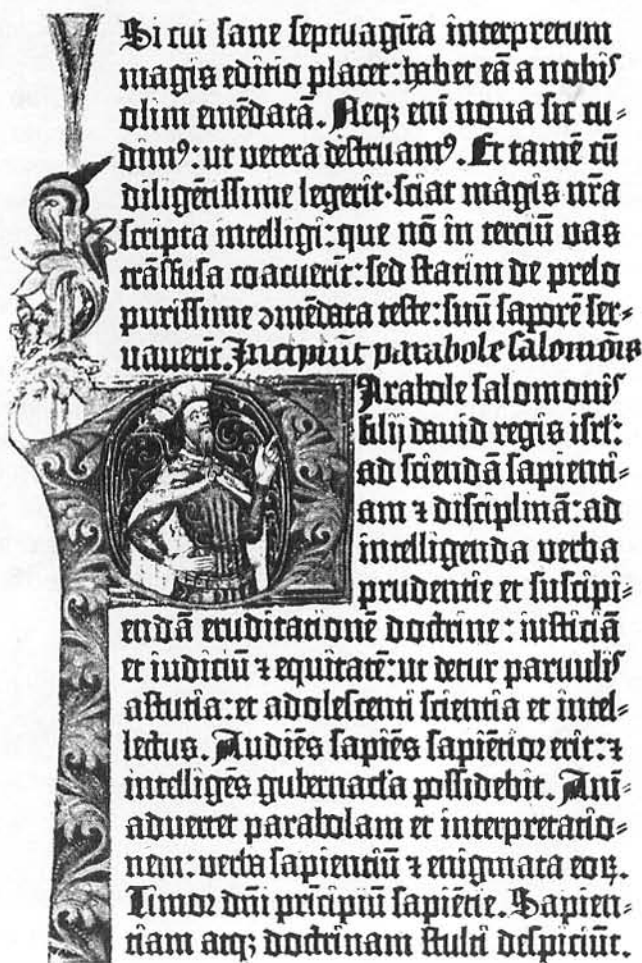 Si cui sane septuagīta interpretum
magis editio placet: habet eā a nobis
olim emēdatā. Neqꝫ enī noua sic cu-
dimꝰ: ut uetera destruamꝰ. Et tamē cū
diligētissime legerit· sciat magis nr̄a
scripta intelligi: que nō in terciū uas
trāsfusa coacuerīt: sed statim de prelo
purissime ꝯmēdata teste: suū saporē ser-
uauerīt. Incipiūt parabole salomōis
Arabole salomonis
filij dauid regis isrl̄:
ad sciendā sapienti-
am ⁊ disciplinā: ad
intelligenda uerba
prudentie et suscipi-
endā eruditationē doctrine: iusticiā
et iudiciū ⁊ equitatē: ut detur paruulis
astutia: et adolescenti scientia et intel-
lectus. Audiēs sapiēs sapiētior erit: ⁊
intelligēs gubernacl̄a possidebit. Ani-
aduertet parabolam et interpretatio-
nem: uerba sapientiū ⁊ enigmata eoꝝ.
Timor dn̄i prīcipiū sapiētie. Sapien-
tiam atqꝫ doctrinam stulti despiciūt.